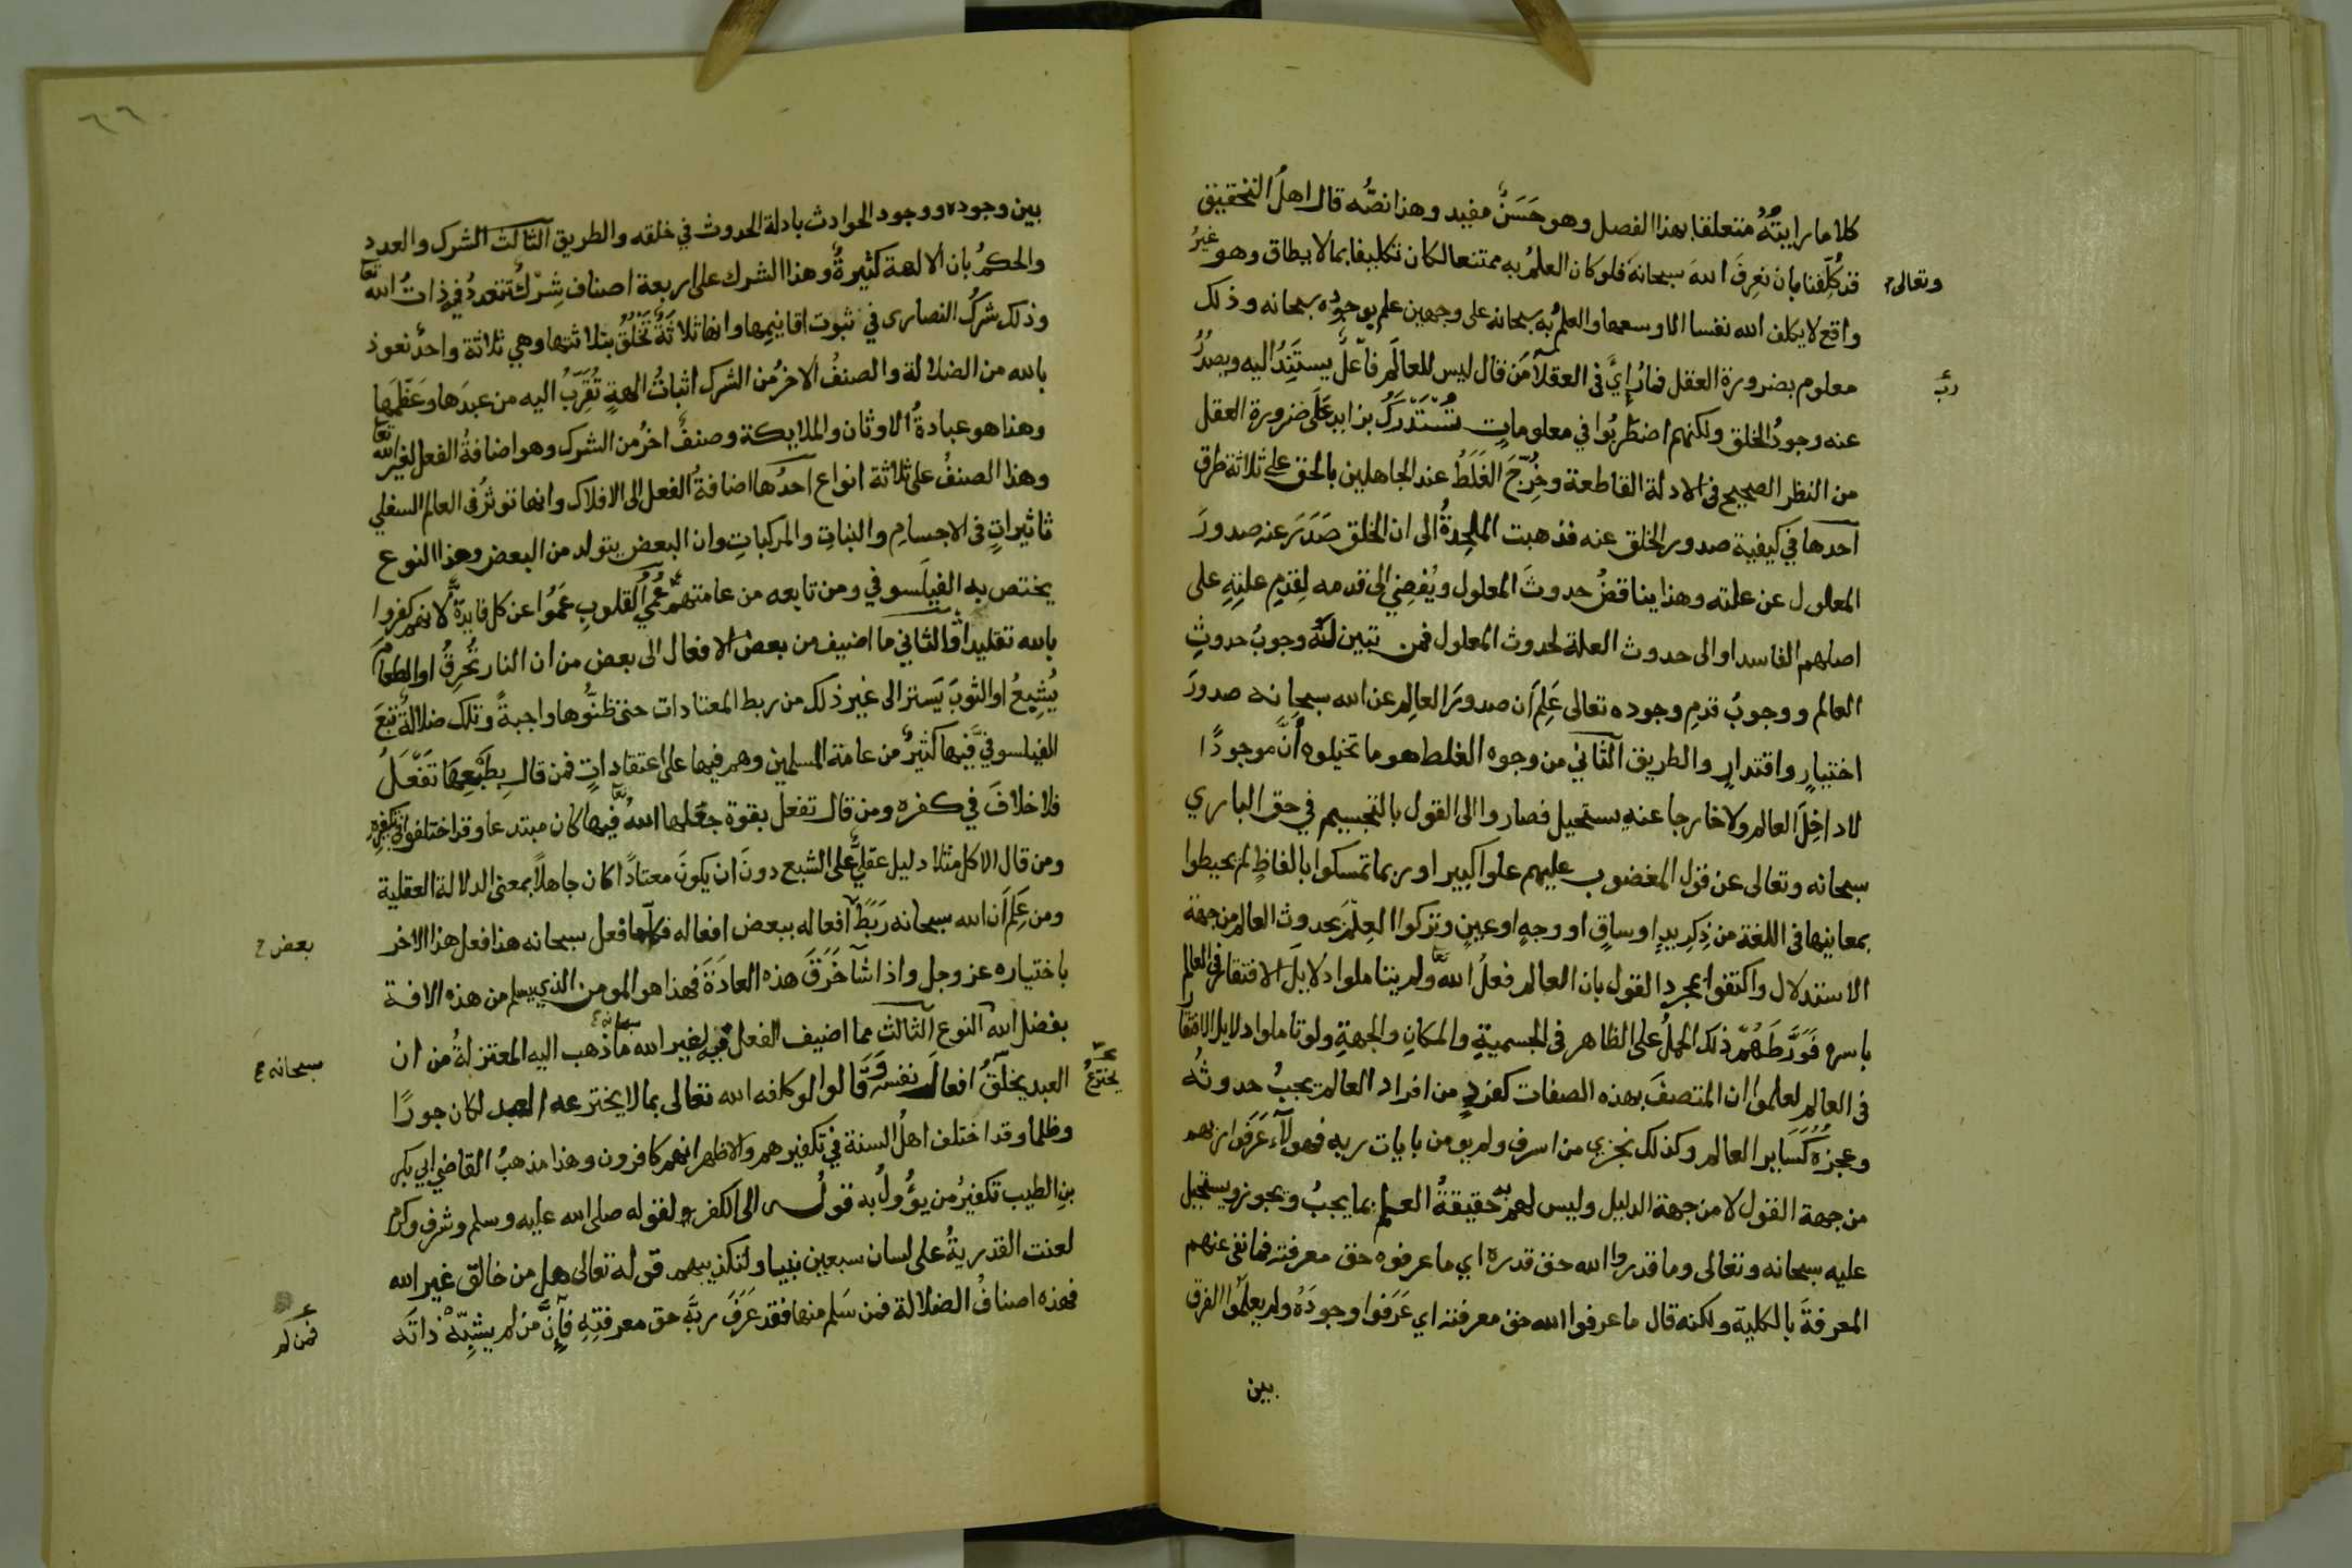 كلاما رايته متعلقا بهذا الفصل وهو حَسَنٌ مفيد وهذا نصُّه قال اهلُ التحقيق
قد كُلِّفنا بان نعرِفَ اللهَ سبحانهَ فلو كان العلمُ به ممتنعا لكان تكليفا بما لا يطاق وهو غيرُ
وتعالى
واقع لا يكلف الله نفسا الا وسعها والعلمُ به سبحانه على وجهين علم بوجوده سبحانه وذلك
معلوم بضرورة العقل فما رُإيَّ في العقلآ مَن قال ليس للعالَم فاعلٌ يستَنِدُ اليه ويصدُرُ
عنه وجودُ الخلق ولكنهم اضطربُوا في معلوماتٍ تُسْتَدْرَكُ بزايد عَلَى ضرورة العقل
من النظر الصحيح في الادلة القاطعة وخُرِّجَ الغَلَطُ عند الجاهلين بالحق على ثلاثة طرق
آحدها في كيفية صدور الخلق عنه فذهبت الملحِدةُ الى ان الخلق صَدَرَ عنه صدورَ
المعلول عن علته وهذا يناقضُ حدوثَ المعلول ويُفضِي الى قدمه لِقدَمِ علتِهِ على
اصلهم الفاسد او الى حدوث العلة لحدوث المعلول فمن تبين لَهُ وجوبُ حدوثِ
العالم ووجوبُ قدمِ وجوده تعالى عَلِمَ اَن صدورَ العالِم عن الله سبحانه صدورَ
اختيارٍ واقتدارٍ والطريق الثاني من وجوه الغلط هو ما تخيلوه أنَّ موجودًا
لا داخِلَ العالم ولا خارجا عنه يستحيل فصاروا الى القول بالتجسيم في حق الباري
سبحانه وتعالى عن قول المغضوب عليهم علوا كبيرا وربما تمسكوا بالفاظٍ لم يحيطوا
بمعانيها في اللغة من ذِكرِ يدٍ او ساقٍ او وجهٍ او عينٍ وتركوا العِلمَ بحدوث العالم من جهة
الاستدلال واكتفوا بمجرد القول بان العالم فعلُ الله ولم يتاملوا دلايلَ الافتقار في العالم
باسره فَوَرَّطَهُمْ ذلك الحملُ على الظاهر في الجسميةِ والمكانِ والجهةِ ولو تاملوا دلايل الافتقار
في العالم لعلموا ان المتصفَ بهذه الصفات كفردٍ من افراد العالم يجبُ حدوثُه
وعجزهُ كَسَاير العالم وكذلك نجزي من اسرف ولم يومن بايات ربه فهولآء عَرَفوا ربهم
من جهة القول لا من جهة الدليل وليس لهم حقيقةُ العلم بما يجبُ ويجوز ويستحيل
عليه سبحانه وتعالى وما قدروا الله حق قدره اي ما عرفوه حق معرفته فما نفى عنهم
المعرفةَ بالكلية ولكنه قال ما عرفوا الله حق معرفته اي عَرَفوا وجودَهُ ولم يعلموا الفرق
بين
بين وجوده ووجود الحوادث بادلة الحدوث في خلقه والطريق الثالث الشرك والعدد
والحكمُ بان الالهة كثيرةٌ وهذا الشرك على اربعة اصناف شِرْكٌ تعددُ في ذاتُ الله تعا
وذلك شركُ النصارى في ثبوت اقانيمِها وانها ثلاثَةٌ تَخْلُقُ بثلاثتها وهي ثلاثة واحدٌ نعوذ
بالله من الضلالة والصنفُ الاخرُ من الشرك اثباتُ الهةٍ تُقَرِّبُ اليه من عبدَها وعَظَّمَها
وهنا هو عبادةُ الاوثان والملايكة وصنفٌ اخرُ من الشرك وهو اضافةُ الفعل لغير الله تعا
وهذا الصنفُ على ثلاثة انواع آحدُها اضافةُ الفعل الى الافلاك وانها توثرُ في العالم السفلي
تاثيراتٍ في الاجسامِ والنباتِ والمركباتِ وان البعض يتولد من البعض وهذا النوع
يختص به الفيلَسوفي ومن تابعه من عامتهم عُمْيُ القلوبِ عَمَوُا عن كل فايدةٍ لانهم كفروا
بالله تقليدا والثاني ما اضيف من بعض الافعال الى بعض من ان النار تُحْرِقُ او الطعامَ
يُشِبِعُ او الثوبَ يَستر الى غير ذلك من ربط المعتادات حتى ظنُّوها واجبةً وتلك ضلالةٌ تبعَ
الفيلسوفيَّ فيها كثيرٌ من عامة المسلمين وهم فيها على اعتقاداتٍ فمن قال بِطَبْعِهَا تَفْعَلُ
فلا خلافَ في كفره ومن قال تفعل بقوة جعلها اللهُ فيها كان مبتدعا وقد اختلفوا في تكفيره
ومن قال الاكل مثلا دليل عقليٌّ على الشبع دونَ ان يكونَ معتادًا كان جاهلاً بمعنى الدلالة العقلية
ومن عَلِمَ اَن الله سبحانه رَبَطَ آفعاله ببعض افعاله فكلَّما فعل سبحانه هذا فعل هذا الاخر
بعض
باختياره عز وجل واذا شآ خَرَقَ هذه العادَةَ فهذا هو المومن الذي يسلم من هذه الافة
بفضل الله النوع الثالث مما اضيف الفعل فيه لغير الله ما ذهب اليه المعتزلةُ من ان
سبحانه
العبد يخلقُ افعالَ نفسه وَقَالوا لو كلفه الله تعالى بما لا يخترعه العبد لكان جورًا
يخترعُ
وظلما وقد اختلف اهلُ السنة في تكفيرهم والاظهر انهم كافرون وهذا مذهبُ القاضي ابي بكر
بنِ الطيب تكفيرُ من يؤُولُ به قولُه الى الكفر ولقوله صلى الله عليه وسلم وشرف وكرم
لعنت القدريةُ على لسان سبعين نبيا ولتكذيبهم قوله تعالى هل من خالق غير الله
فهذه اصنافُ الضلالة فمن سَلم منها فقد عَرَفَ ربَّه حق معرفتِهِ فَإِنَّ من لم يشبِّهْ ذاتَه
فمن لم